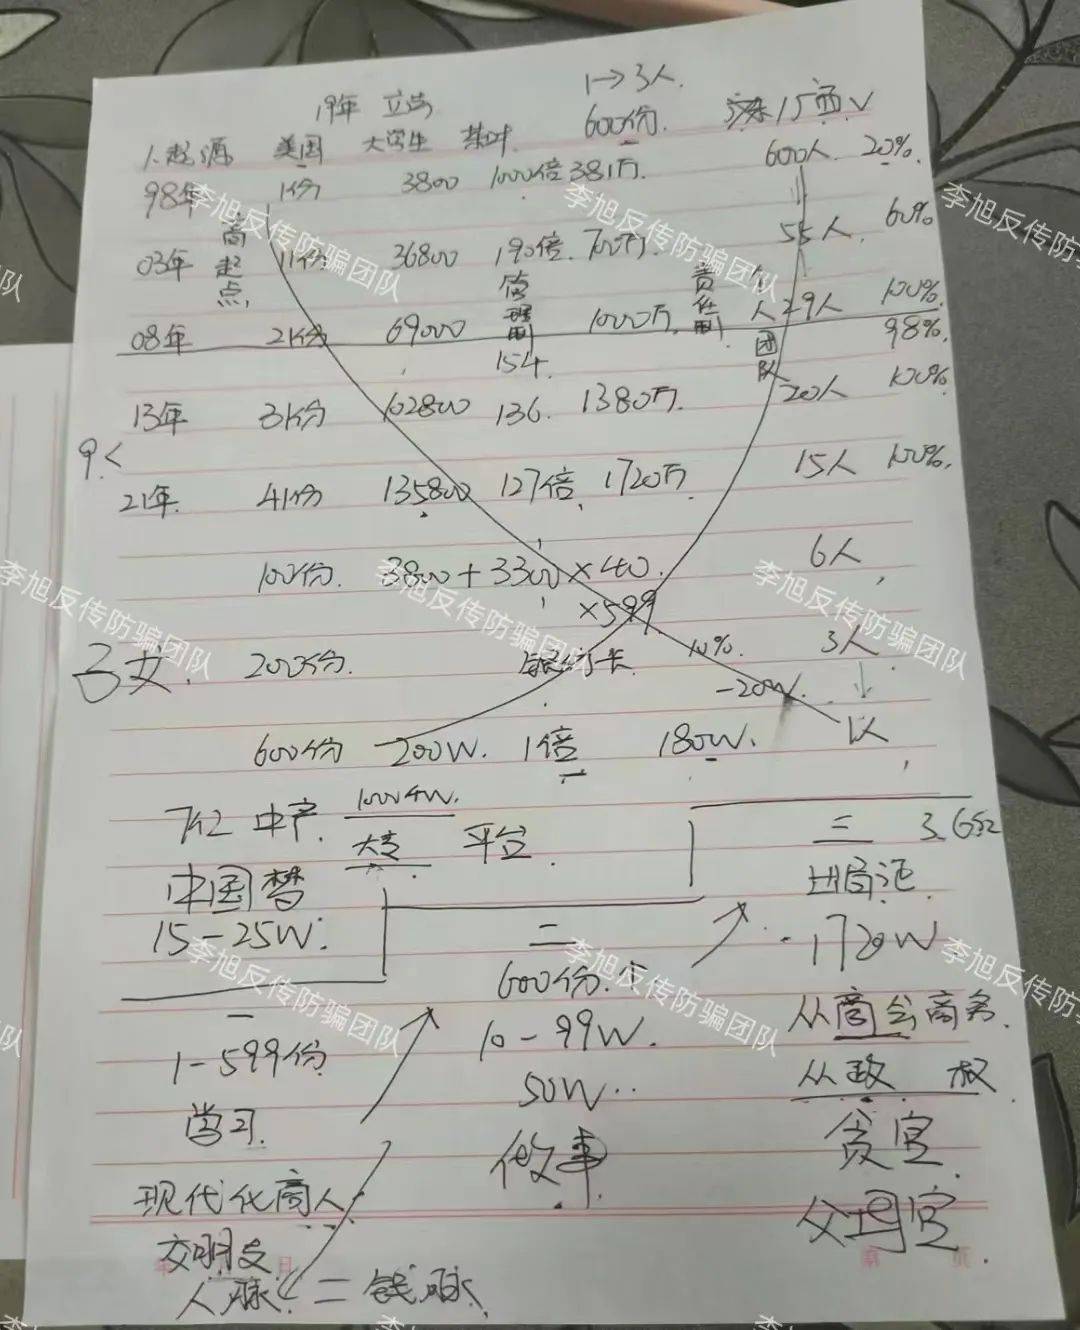 19年 1→3人.
1.起源 美国 大学生 600份. 广西 V
98年 1份 3800 1000倍 381万. 600人 20%.
高起点
03年 11份 36800 190倍. 700万. 55人. 60%
管理制 责任制
08年 21份 69000 1000万. 29人 100%.
98%.
154. 团队
13年 31份 102800 136. 1380万. 20人 100%
9<
21年. 41份 135800 127倍 1720万. 15人 100%.
100份. 3800+3300×40. 6人
×599
子女. 200份. 银行卡 10% 3人
-20W. ↓
600份 200W. 1倍 180W. 1人
7亿 中产. 1000亿W. 三
大专 平台. 进局记.
中国梦
15-25W. 二 1720W
600份.
一 10-99W. 从商会商务.
1-599份 50W.. 从政 权
学习. 做事. 贪官.
现代化商人. 父母官.
交朋友
人脉=钱脉.
李旭反传防骗团队
李旭反传防骗团队
李旭反传防骗团队
李旭反传防骗团队
李旭反传防骗团队
李旭反传防骗团队
李旭反传防骗团队
李旭反传防骗团队
李旭反传防骗团队